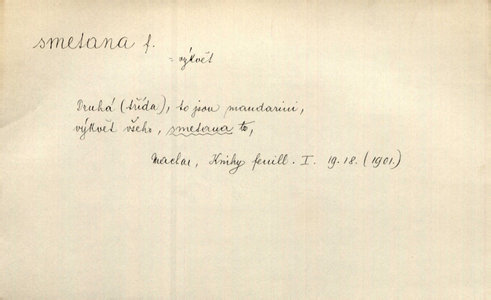 smetana f.
= výkvět
Druhá (třída), to jsou mandarini,
výkvět všeho, smetana to,
Machar, Knihy feuill. I. 19.18. (1901.)